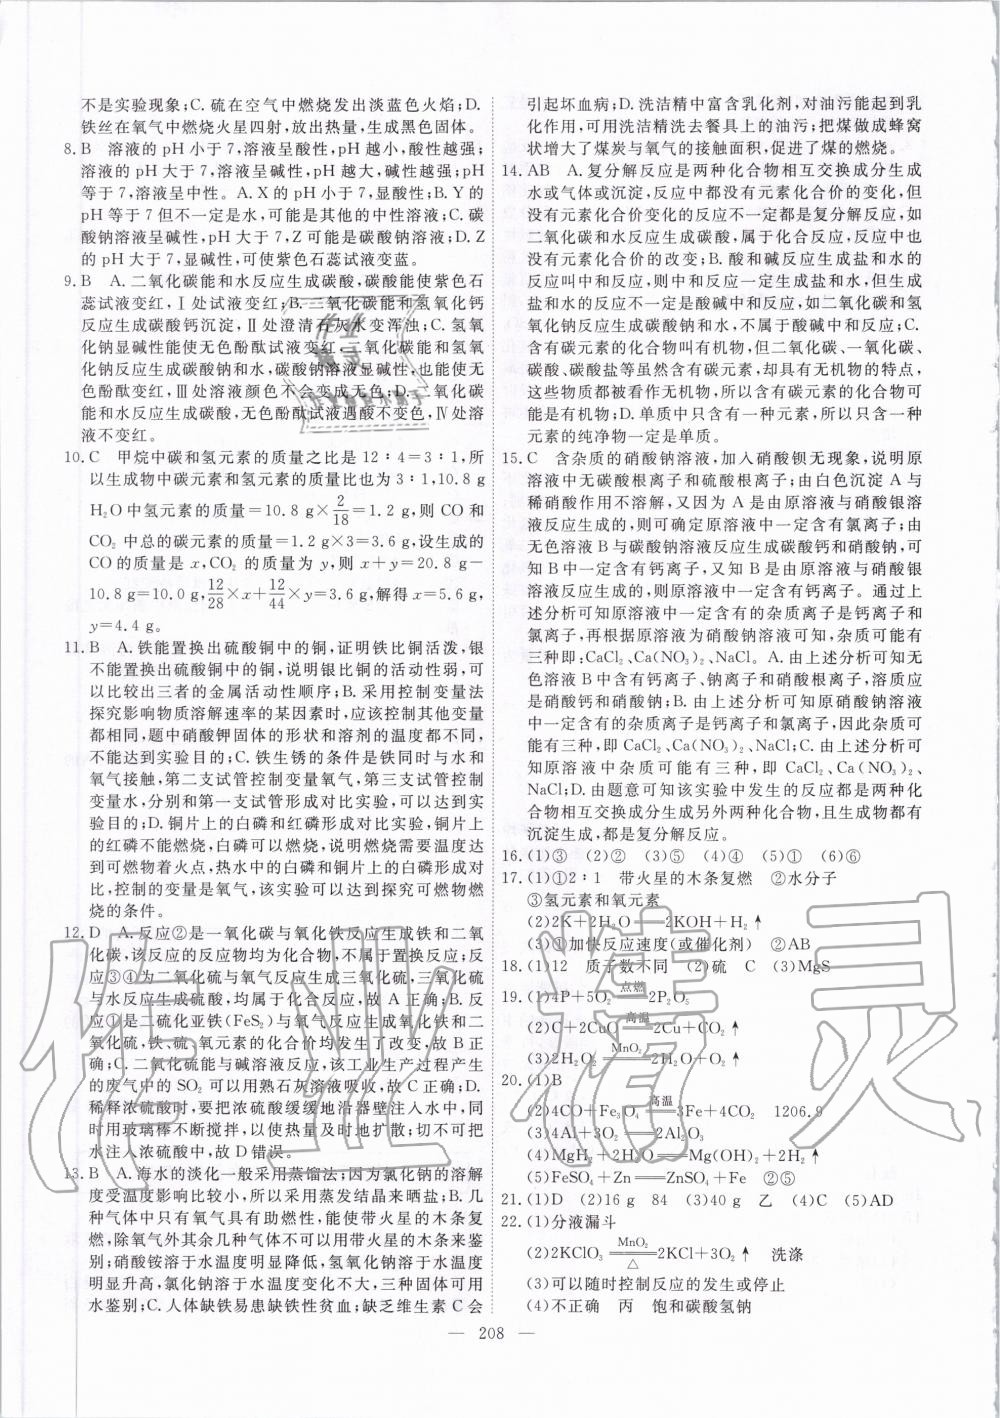 不是实验现象;C. 硫在空气中燃烧发出淡蓝色火焰;D.
铁丝在氧气中燃烧火星四射,放出热量,生成黑色固体。
8. B 溶液的 pH 小于 7,溶液呈酸性,pH 越小,酸性越强;
溶液的 pH 大于 7,溶液呈碱性,pH 越大,碱性越强;pH
等于 7,溶液呈中性。A. X 的 pH 小于 7,显酸性;B. Y 的
pH 等于 7 但不一定是水,可能是其他的中性溶液;C. 碳
酸钠溶液呈碱性,pH 大于 7,Z 可能是碳酸钠溶液;D. Z
的 pH 大于 7,显碱性,可使紫色石蕊试液变蓝。
9. B A. 二氧化碳能和水反应生成碳酸,碳酸能使紫色石
蕊试液变红,Ⅰ处试液变红;B. 二氧化碳能和氢氧化钙
反应生成碳酸钙沉淀,Ⅱ处澄清石灰水变浑浊;C. 氢氧
化钠显碱性能使无色酚酞试液变红,二氧化碳能和氢氧
化钠反应生成碳酸钠和水,碳酸钠溶液显碱性,也能使无
色酚酞变红,Ⅲ处溶液颜色不会变成无色;D. 二氧化碳
能和水反应生成碳酸,无色酚酞试液遇酸不变色,Ⅳ处溶
液不变红。
10. C 甲烷中碳和氢元素的质量之比是 12∶4=3∶1,所
以生成物中碳元素和氢元素的质量比也为 3∶1,10.8 g
H₂O 中氢元素的质量=10.8 g×2/18=1.2 g,则 CO 和
CO₂ 中总的碳元素的质量=1.2 g×3=3.6 g,设生成的
CO 的质量是 x,CO₂ 的质量为 y,则 x+y=20.8 g-
10.8 g=10.0 g,12/28×x+12/44×y=3.6 g,解得 x=5.6 g,
y=4.4 g。
11. B A. 铁能置换出硫酸铜中的铜,证明铁比铜活泼,银
不能置换出硫酸铜中的铜,说明银比铜的活动性弱,可
以比较出三者的金属活动性顺序;B. 采用控制变量法
探究影响物质溶解速率的某因素时,应该控制其他变量
都相同,题中硝酸钾固体的形状和溶剂的温度都不同,
不能达到实验目的;C. 铁生锈的条件是铁同时与水和
氧气接触,第二支试管控制变量氧气,第三支试管控制
变量水,分别和第一支试管形成对比实验,可以达到实
验目的;D. 铜片上的白磷和红磷形成对比实验,铜片上
的红磷不能燃烧,白磷可以燃烧,说明燃烧需要温度达
到可燃物着火点,热水中的白磷和铜片上的白磷形成对
比,控制的变量是氧气,该实验可以达到探究可燃物燃
烧的条件。
12. D A. 反应②是一氧化碳与氧化铁反应生成铁和二氧
化碳,该反应的反应物均为化合物,不属于置换反应;反
应③④为二氧化硫与氧气反应生成三氧化硫,三氧化硫
与水反应生成硫酸,均属于化合反应,故 A 正确;B. 反
应①是二硫化亚铁(FeS₂)与氧气反应生成氧化铁和二
氧化硫,铁、硫、氧元素的化合价均发生了改变,故 B 正
确;C. 二氧化硫能与碱溶液反应,该工业生产过程产生
的废气中的 SO₂ 可以用熟石灰溶液吸收,故 C 正确;D.
稀释浓硫酸时,要把浓硫酸缓缓地沿器壁注入水中,同
时用玻璃棒不断搅拌,以使热量及时地扩散;切不可把
水注入浓硫酸中,故 D 错误。
13. B A. 海水的淡化一般采用蒸馏法;因为氯化钠的溶解
度受温度影响比较小,所以采用蒸发结晶来晒盐;B. 几
种气体中只有氧气具有助燃性,能使带火星的木条复
燃,除氧气外其余几种气体不可以用带火星的木条来鉴
别;硝酸铵溶于水温度明显降低,氢氧化钠溶于水温度
明显升高,氯化钠溶于水温度变化不大,三种固体可用
水鉴别;C. 人体缺铁易患缺铁性贫血;缺乏维生素 C 会
引起坏血病;D. 洗洁精中富含乳化剂,对油污能起到乳
化作用,可用洗洁精洗去餐具上的油污;把煤做成蜂窝
状增大了煤炭与氧气的接触面积,促进了煤的燃烧。
14. AB A. 复分解反应是两种化合物相互交换成分生成
水或气体或沉淀,反应中都没有元素化合价的变化,但
没有元素化合价变化的反应不一定都是复分解反应,如
二氧化碳和水反应生成碳酸,属于化合反应,反应中也
没有元素化合价的改变;B. 酸和碱反应生成盐和水的
反应叫中和反应,则中和反应一定生成盐和水,但生成
盐和水的反应不一定是酸碱中和反应,如二氧化碳和氢
氧化钠反应生成碳酸钠和水,不属于酸碱中和反应;C.
含有碳元素的化合物叫有机物,但二氧化碳、一氧化碳、
碳酸、碳酸盐等虽然含有碳元素,却具有无机物的特点,
这些物质都被看作无机物,所以含有碳元素的化合物可
能是有机物;D. 单质中只含有一种元素,所以只含一种
元素的纯净物一定是单质。
15. C 含杂质的硝酸钠溶液,加入硝酸钡无现象,说明原
溶液中无碳酸根离子和硫酸根离子;由白色沉淀 A 与
稀硝酸作用不溶解,又因为 A 是由原溶液与硝酸银溶
液反应生成的,则可确定原溶液中一定含有氯离子;由
无色溶液 B 与碳酸钠溶液反应生成碳酸钙和硝酸钠,可
知 B 中一定含有钙离子,又知 B 是由原溶液与硝酸银
溶液反应生成的,则原溶液中一定含有钙离子。通过上
述分析可知原溶液中一定含有的杂质离子是钙离子和
氯离子,再根据原溶液为硝酸钠溶液可知,杂质可能有
三种即:CaCl₂、Ca(NO₃)₂、NaCl。A. 由上述分析可知无
色溶液 B 中含有钙离子、钠离子和硝酸根离子,溶质应
是硝酸钙和硝酸钠;B. 由上述分析可知原硝酸钠溶液
中一定含有的杂质离子是钙离子和氯离子,因此杂质可
能有三种,即 CaCl₂、Ca(NO₃)₂、NaCl;C. 由上述分析可
知原溶液中杂质可能有三种,即 CaCl₂、Ca(NO₃)₂、
NaCl;D. 由题意可知该实验中发生的反应都是两种化
合物相互交换成分生成另外两种化合物,且生成物都有
沉淀生成,都是复分解反应。
16. (1)③ (2)② (3)⑤ (4)④ (5)① (6)⑥
17. (1)①2∶1 带火星的木条复燃 ②水分子
③氢元素和氧元素
(2)2K+2H₂O══2KOH+H₂↑
(3)①加快反应速度(或催化剂) ②AB
18. (1)12 质子数不同 (2)硫 C (3)MgS
19. (1)4P+5O₂ 点燃══ 2P₂O₅
(2)C+2CuO 高温══ 2Cu+CO₂↑
(3)2H₂O₂ MnO₂══ 2H₂O+O₂↑
20. (1)B
(2)4CO+Fe₃O₄ 高温══ 3Fe+4CO₂ 1206.9
(3)4Al+3O₂══2Al₂O₃
(4)MgH₂+2H₂O══Mg(OH)₂+2H₂↑
(5)FeSO₄+Zn══ZnSO₄+Fe ②⑤
21. (1)D (2)16 g 84 (3)40 g 乙 (4)C (5)AD
22. (1)分液漏斗
(2)2KClO₃ MnO₂══△ 2KCl+3O₂↑ 洗涤
(3)可以随时控制反应的发生或停止
(4)不正确 丙 饱和碳酸氢钠
— 208 —
作业精灵